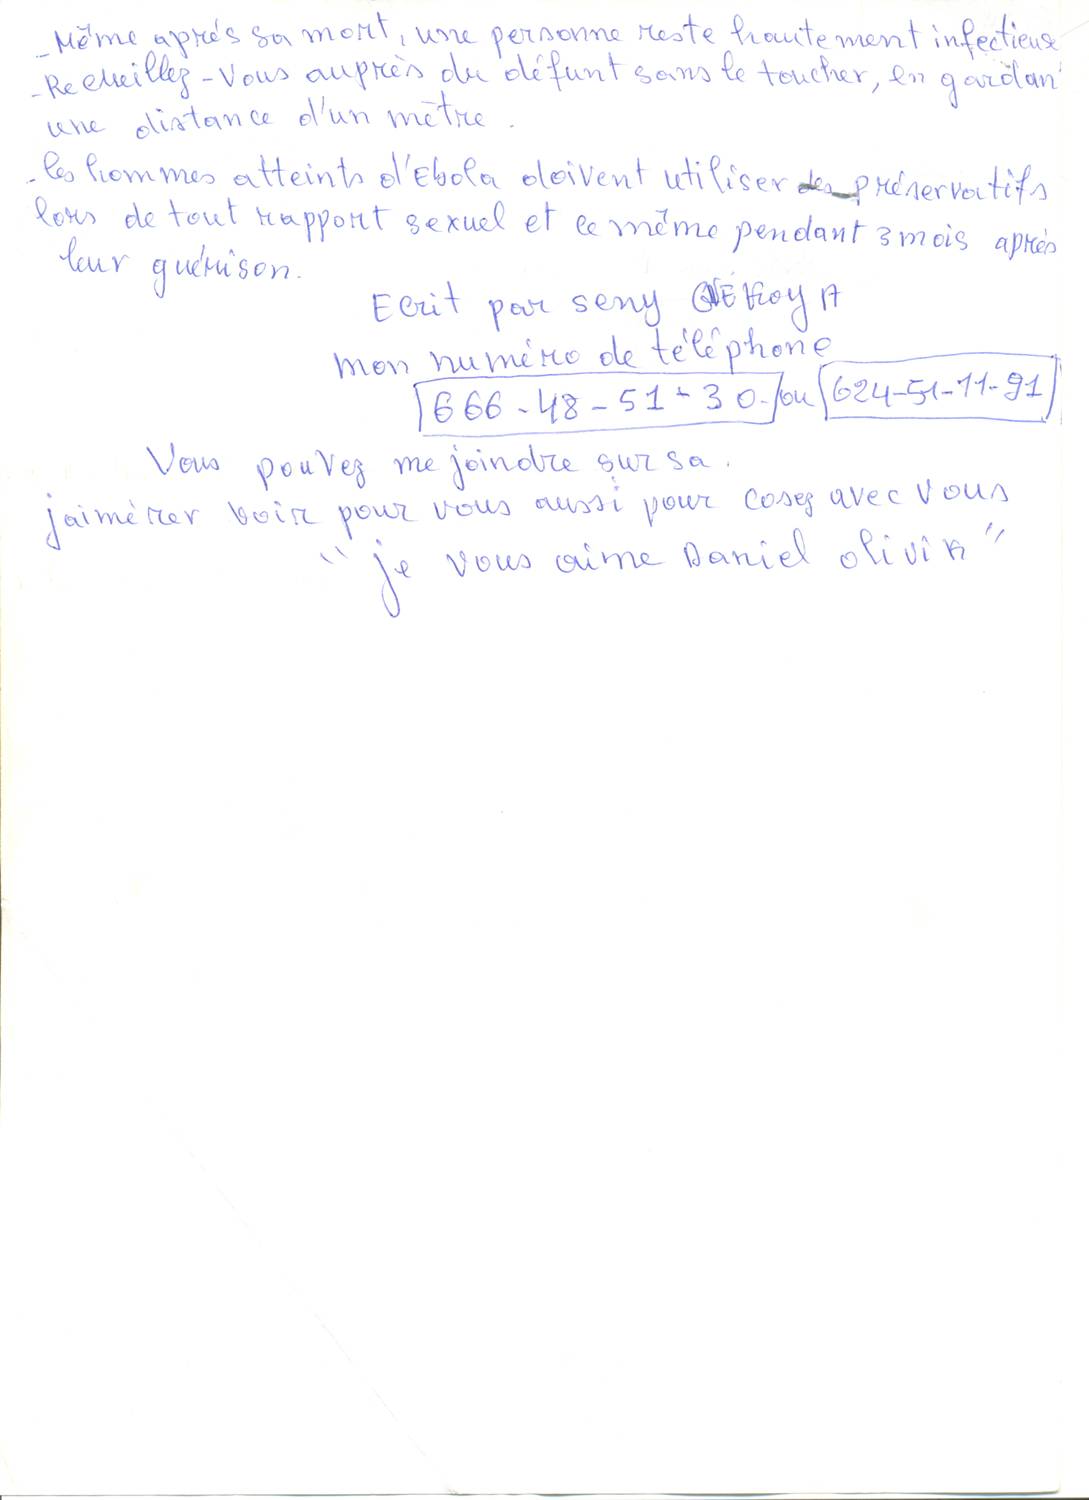 - Même aprés sa mort, une personne reste hautement infectieuse
- Recueillez-vous auprès du défunt sans le toucher, en gardan
une distance d'un mètre.
- les hommes atteints d'Ebola doivent utiliser des préservatifs
lors de tout rapport sexuel et ce même pendant 3 mois après
leur guérison.
Ecrit par seny
mon numéro de téléphone
666-48-51-30. ou 624-51-11-91
Vous pouvez me joindre sur sa.
jaimérer voir pour vous aussi pour cosez avec vous
"je vous aime Daniel olivia"